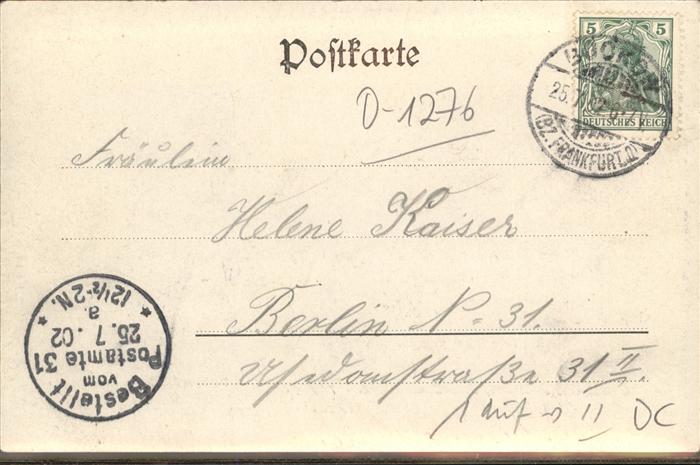 Postkarte
5 5
DEUTSCHES REICH
25.7.02
(BZ. FRANKFURT, O)
D-1276
Fräulein
Helene Kaiser
Berlin N. 31.
Usedomstraße 31 II.
II DC
Bestellt
vom
Postamte 31
25.7.02
a.
* 12½-2N. *